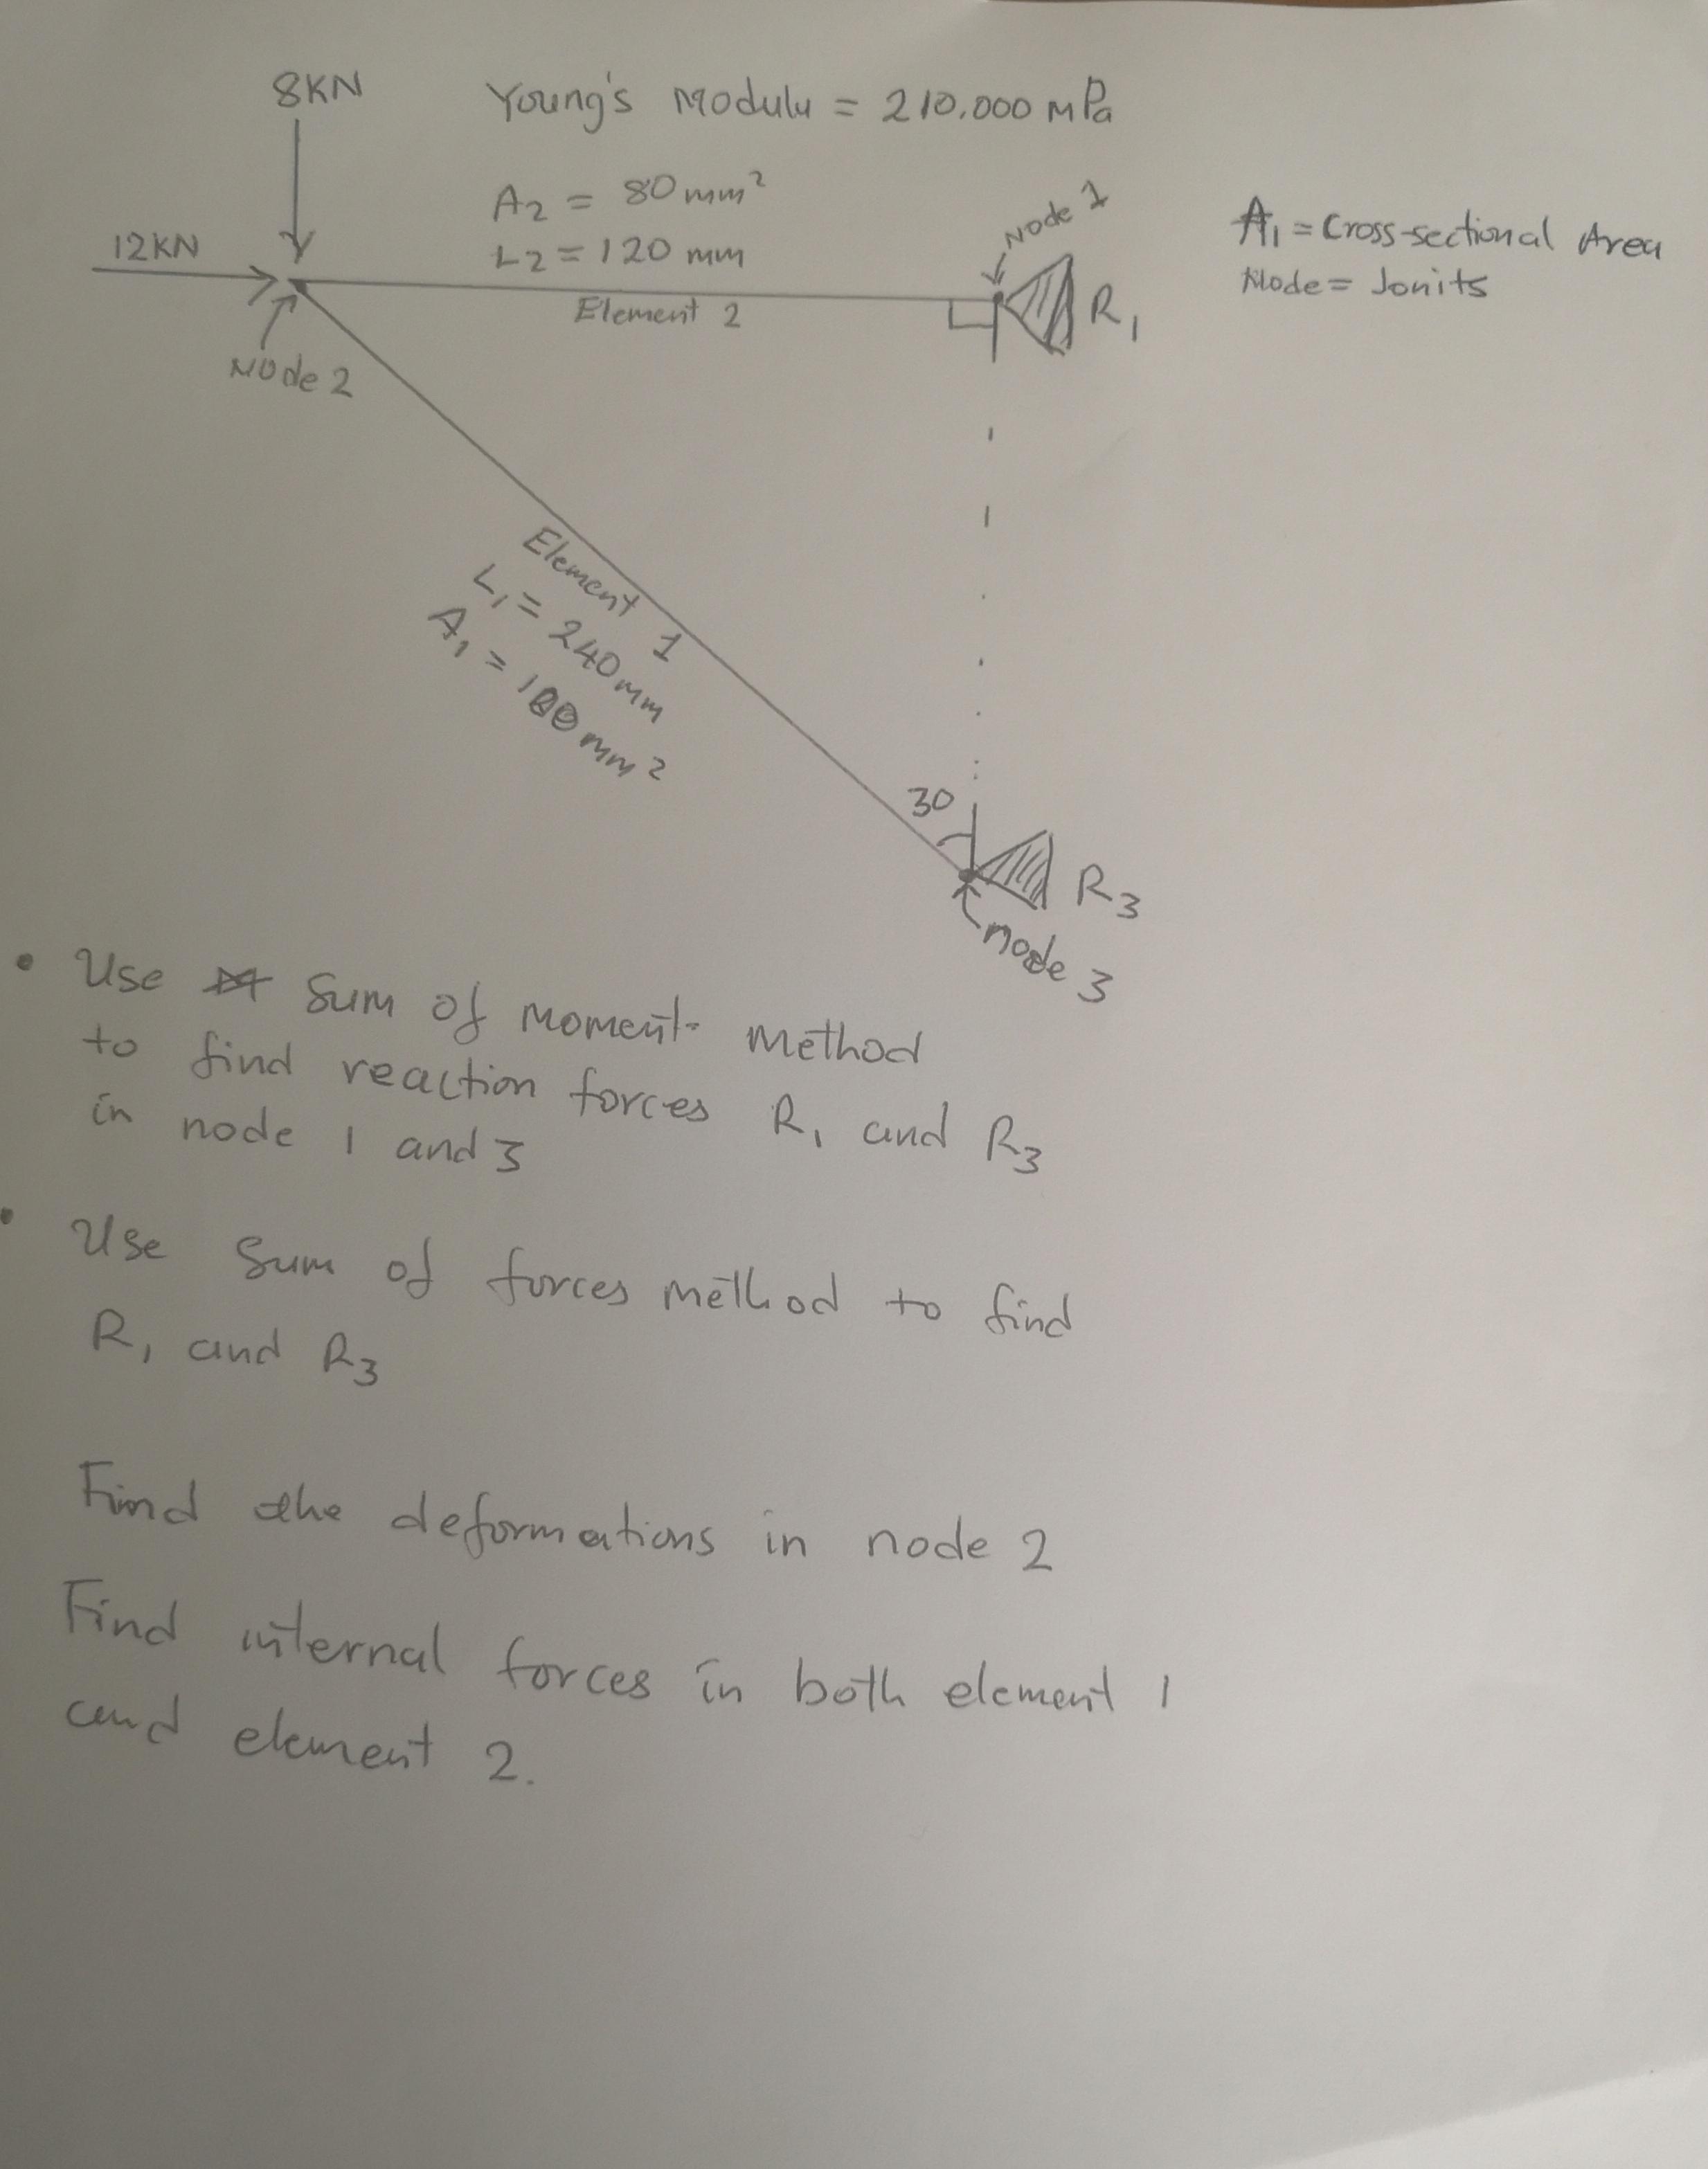 8KN
Young's Modulu = 210.000 MPa
A2 = 80 mm²
L2 = 120 mm
12KN
Node 1
A₁ = Cross-sectional Area
Node = Jonits
Element 2
R₁
Node 2
Element 1
L₁ = 240 mm
A₁ = 100 mm²
30
R3
node 3
• Use Sum of Moment Method
to find reaction forces R₁ and R3
in node 1 and 3
• Use Sum of forces Method to find
R₁ and R3
Find the deformations in node 2
Find internal forces in both element 1
and element 2.